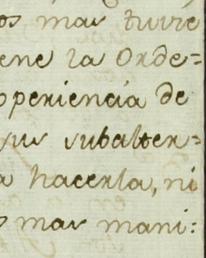 os mas turre
ene la Orde=
xperiencia de
sus subalter-
a hacerla, ni
s mas mani: